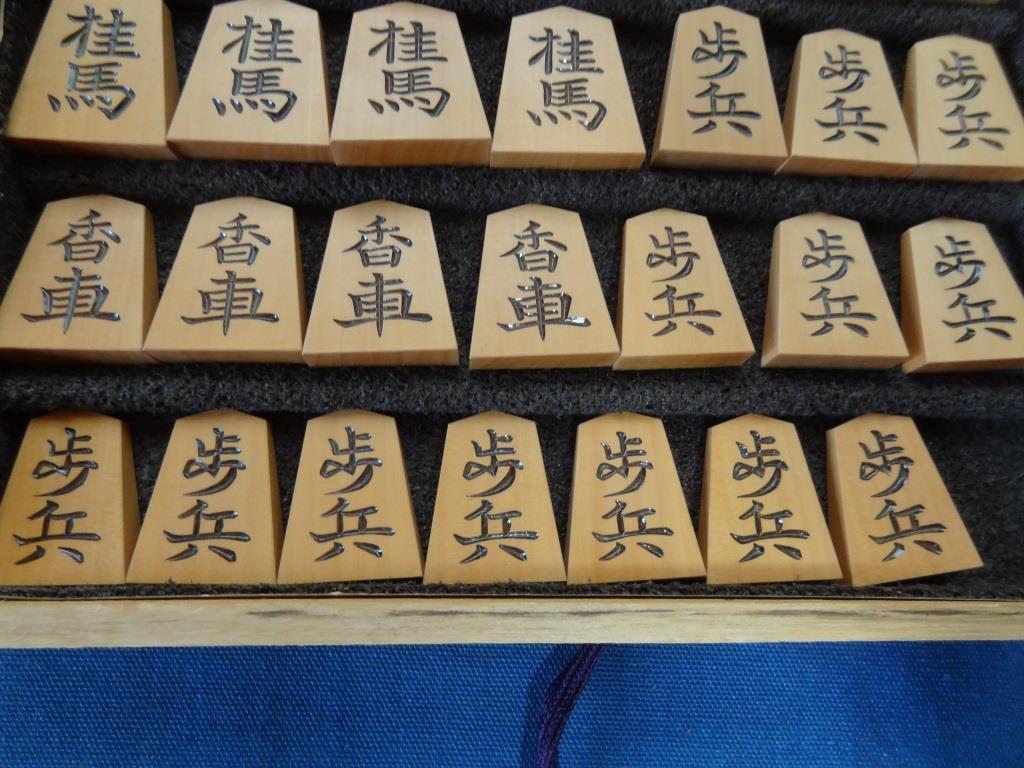 桂馬 桂馬 桂馬 桂馬 歩兵 歩兵 歩兵
香車 香車 香車 香車 歩兵 歩兵 歩兵
歩兵 歩兵 歩兵 歩兵 歩兵 歩兵 歩兵